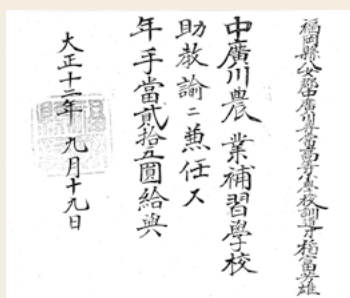 福岡縣八女郡中廣川尋常高等小學校訓導 稻富英雄
中廣川農業補習學校
助教諭ニ兼任ス
年手當貳拾五圓給與
大正十二年 九月十九日